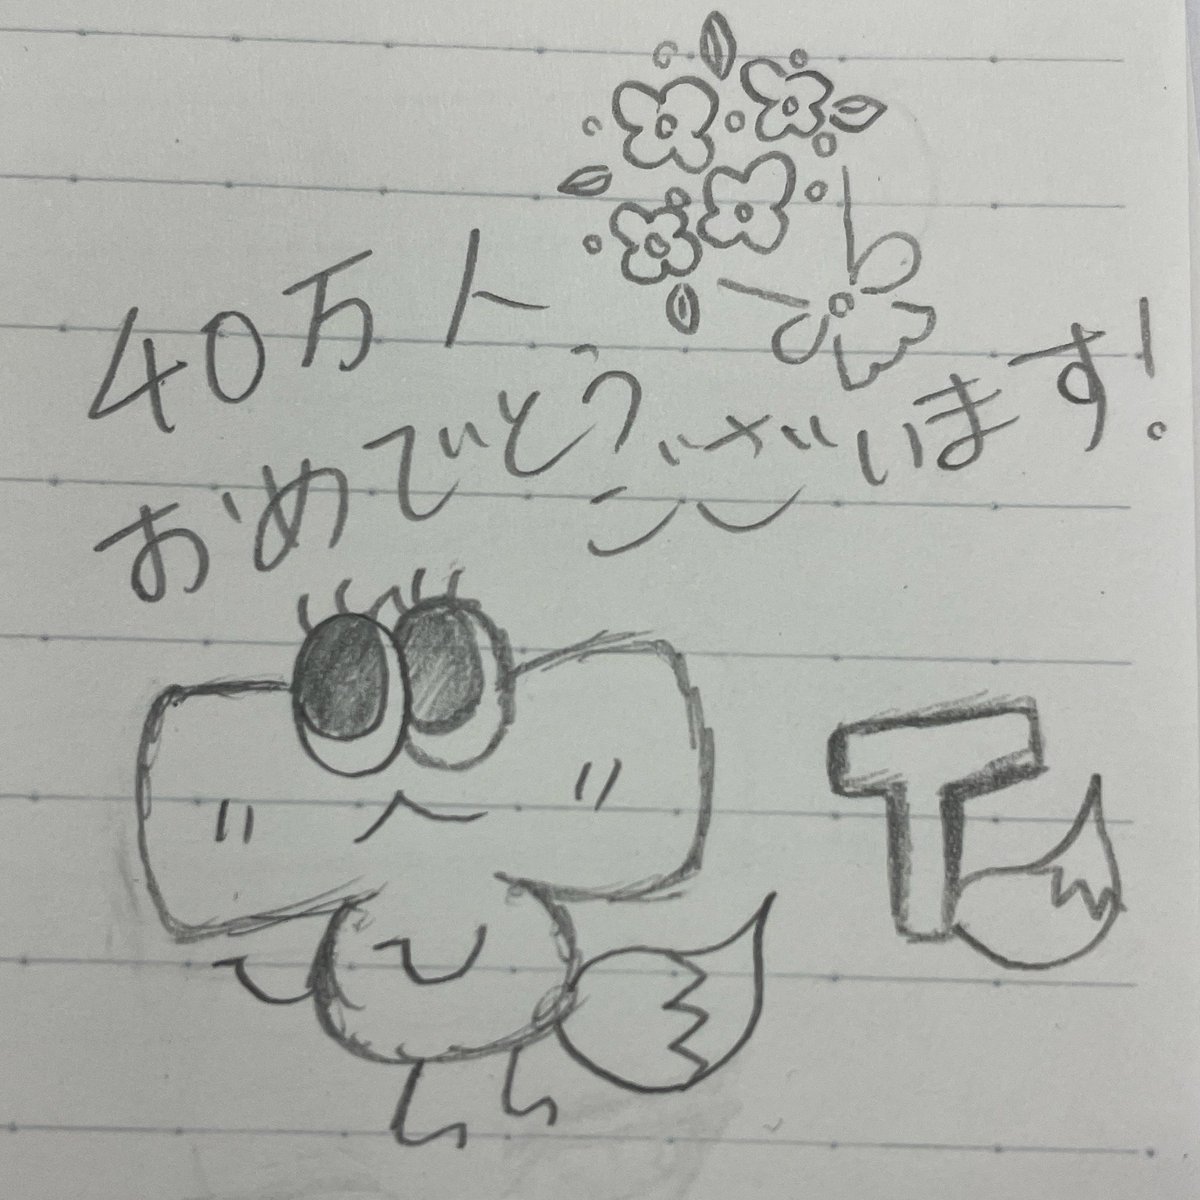 40万人
おめでとうございます!
T